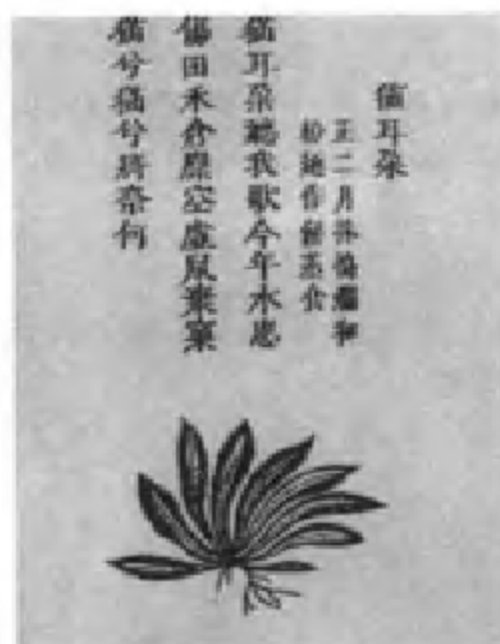 猫耳朵
正二月採搗爛和
粉麺作餅蒸食
猫耳朵聽我歌今年水患
傷田禾倉廩空虛鼠棄窠
猫兮猫兮將奈何